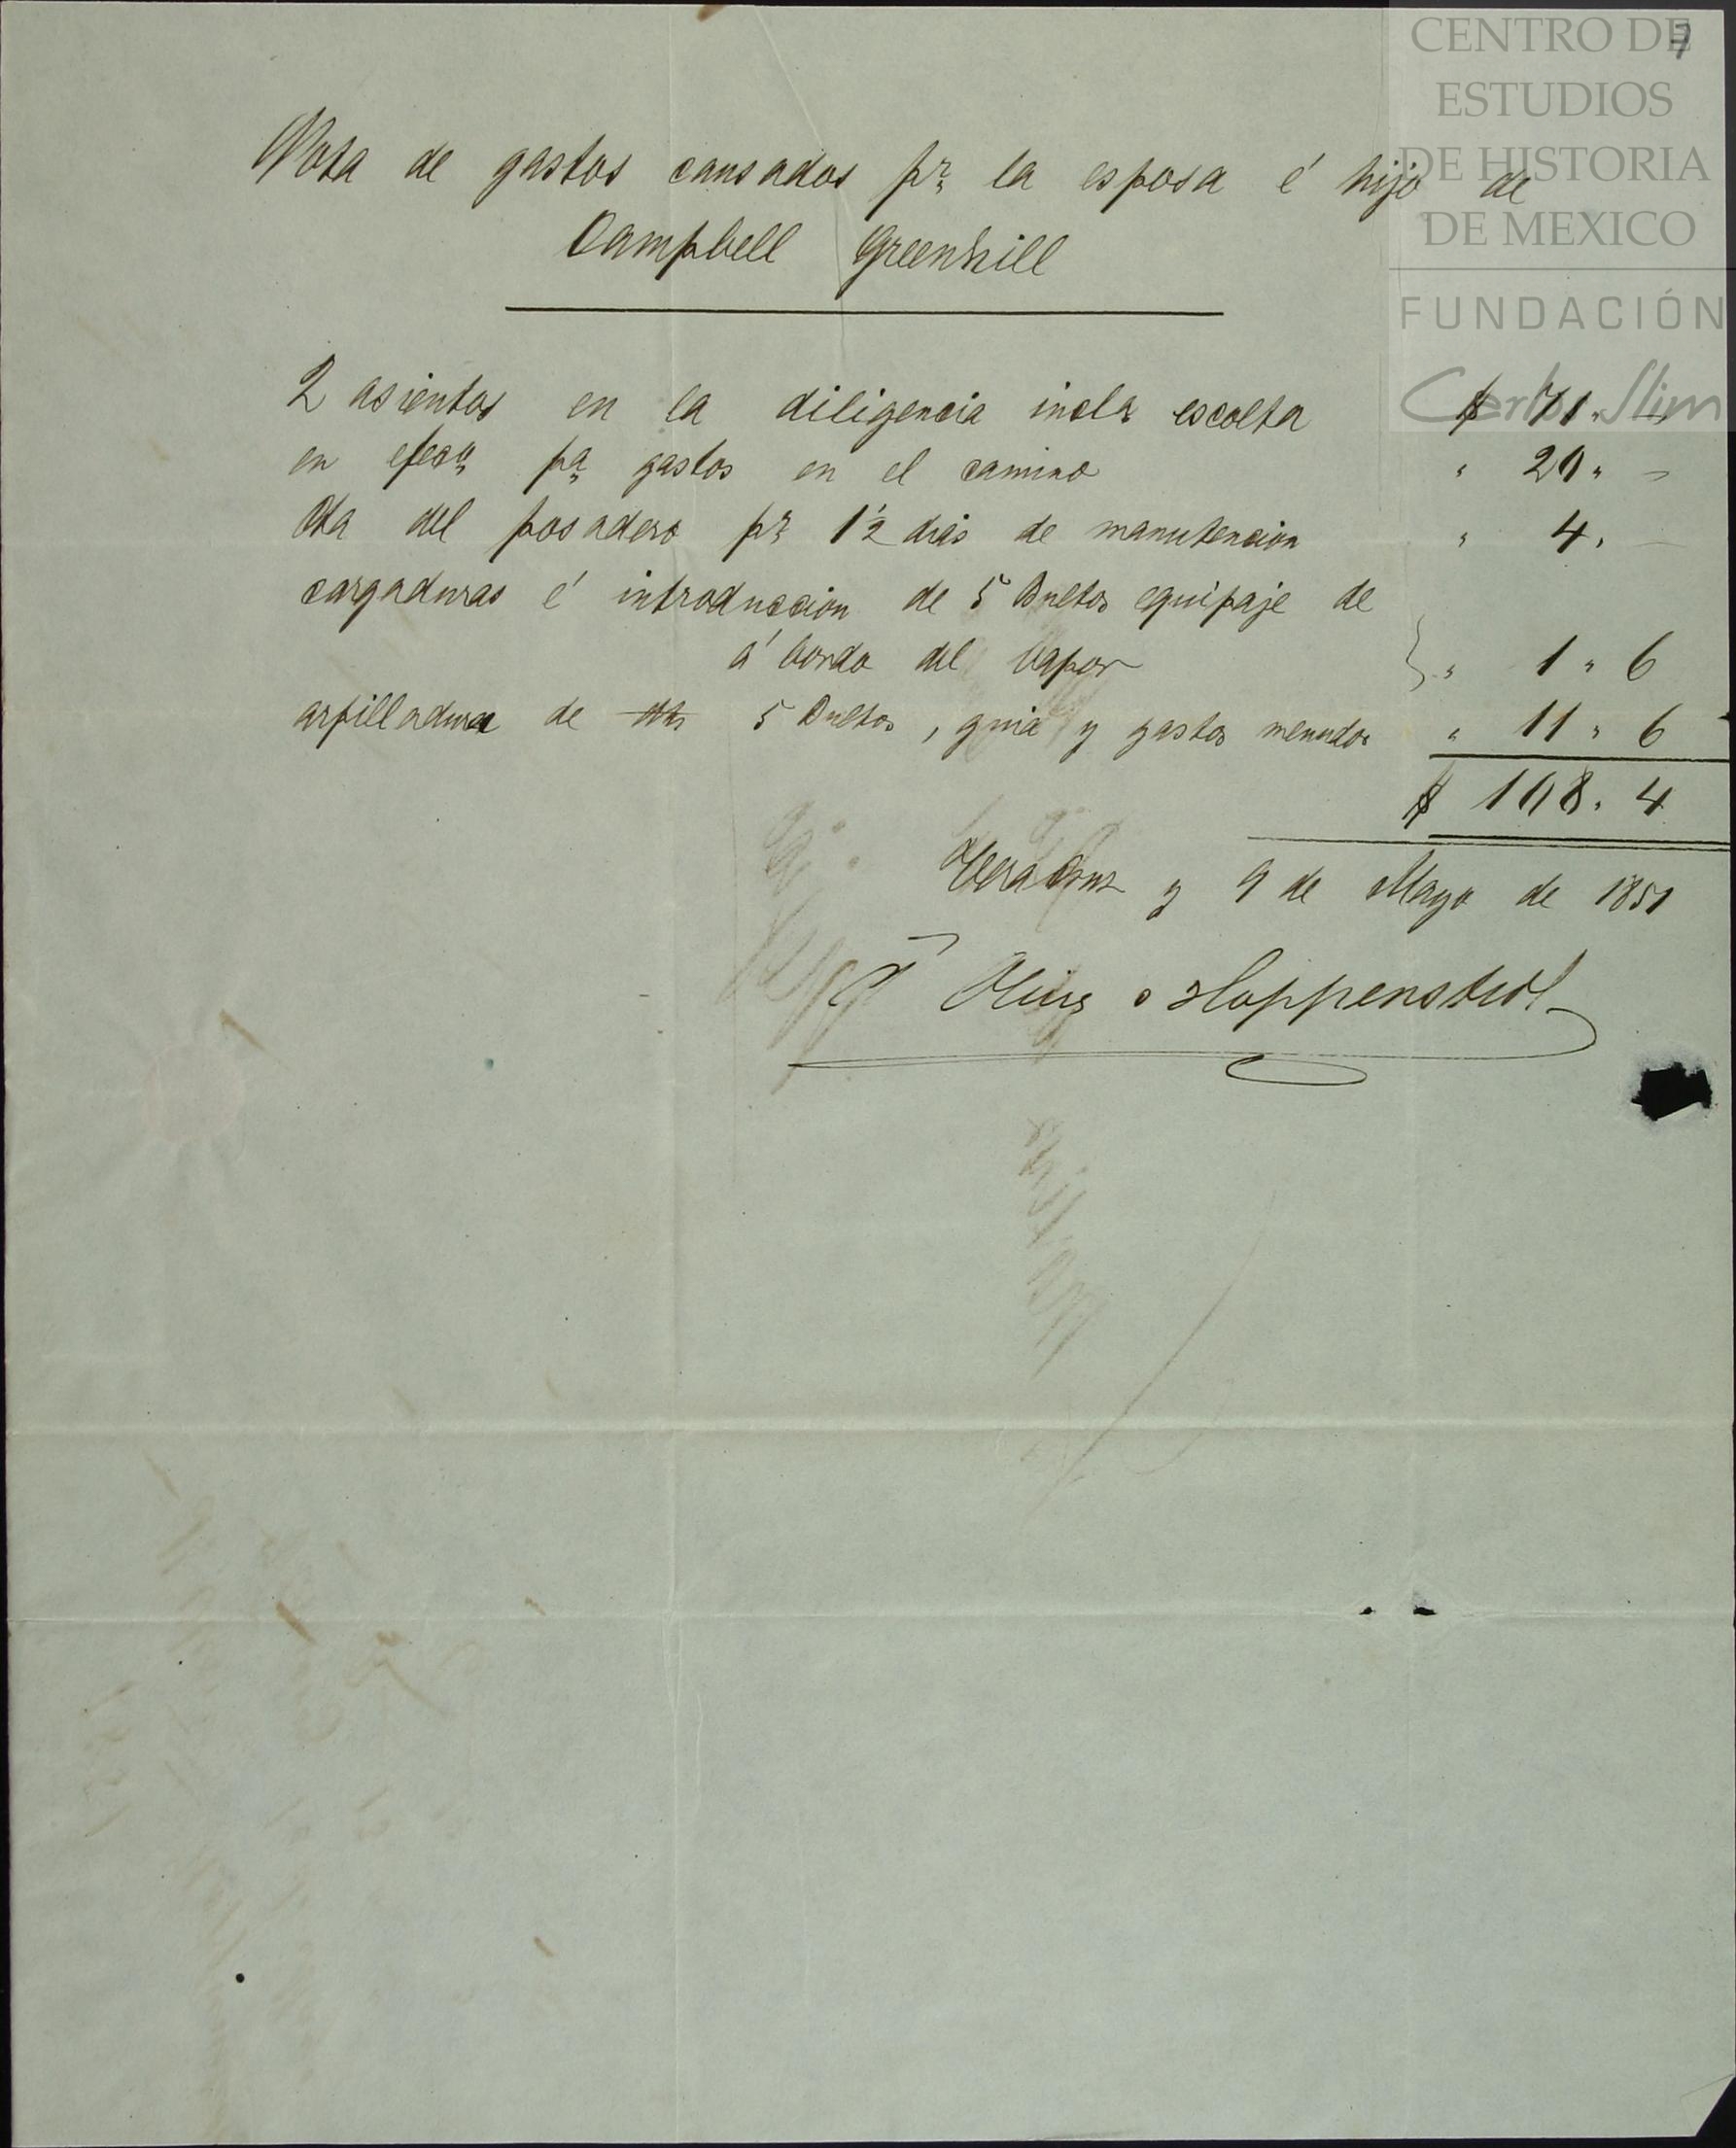 7
CENTRO DE
ESTUDIOS
DE HISTORIA
DE MEXICO
FUNDACIÓN
Carlos Slim
Nota de gastos causados pr. la esposa é hijo de
Campbell Greenhill
2 asientos en la diligencia incls. escolta $ 71. –
en efeco. pa. gastos en el camino " 20 " –
Cta del posadero pr. 1½ dias de manutencion " 4. –
cargaduras é introduccion de 5 Bultos equipaje de
á bordo del Vapor } " 1 " 6
arpilladura de 5 Bultos, guia y gastos menudos " 11 " 6
$ 108. 4
VeraCruz y 9 de Mayo de 1851
Hoppenstedt